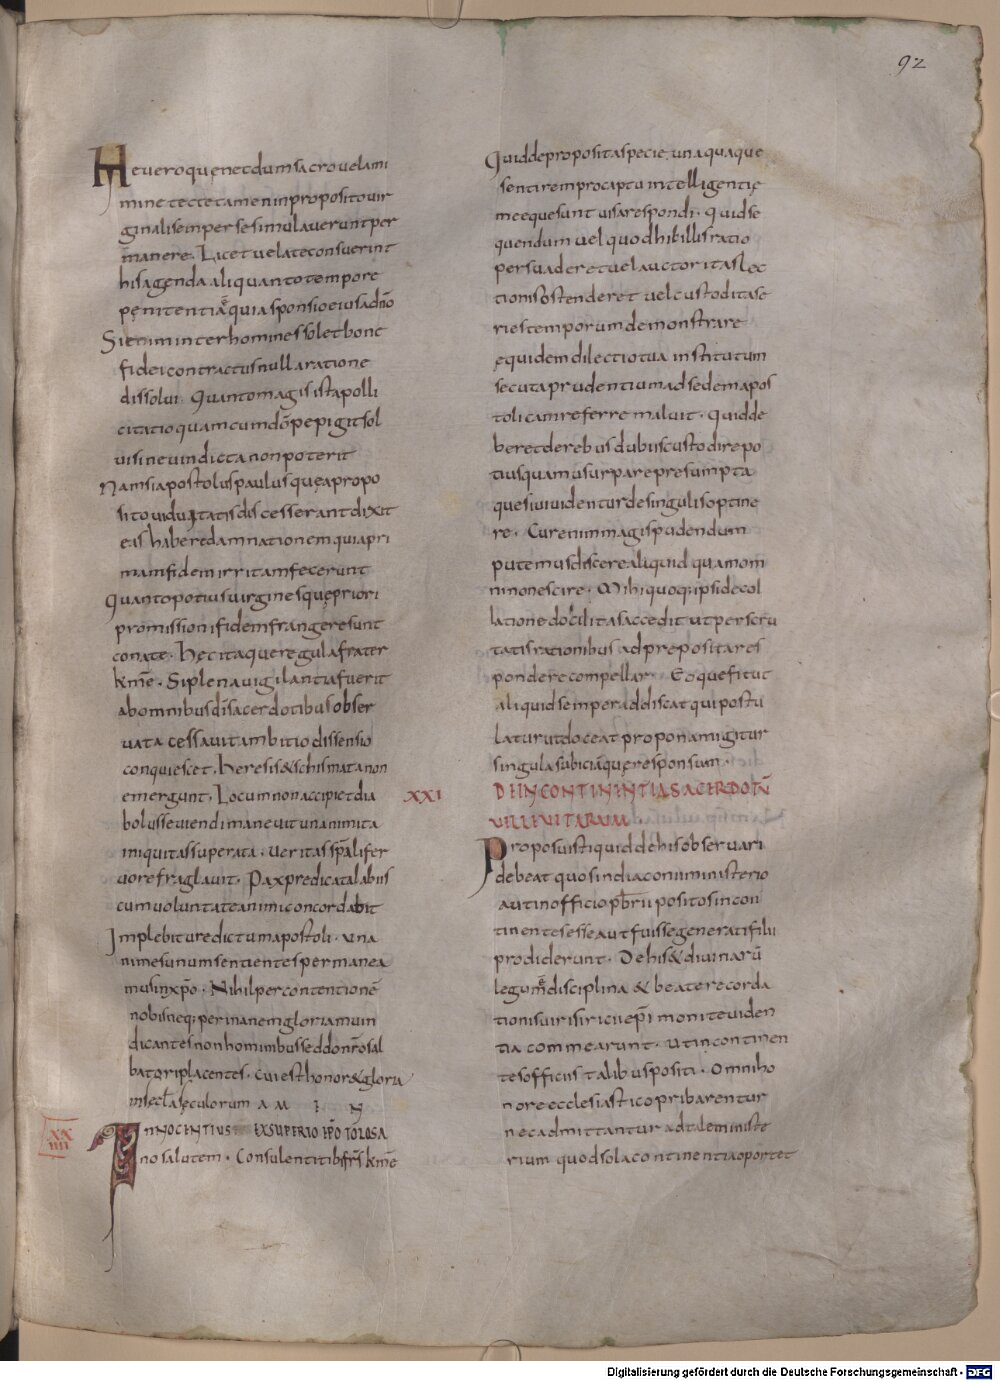 92
Hę vero quę necdum sacro velami
mine tectę tamen in proposito vir
ginali se in perse simulaverunt per
manere. Licet velatę non fuerint
his agenda aliquanto tempore
pęnitentia quia sponsio eius ad dnō
Si enim inter homines solet bonę
fidei contractus nulla ratione
dissolui. Quanto magis ista polli
citatio quam cum dō pepigit sol
ui sine vindicta non poterit
Nam si apostolus paulus quę a propo
sito viduetatis discesserant dixit
eas habere damnationem quia pri
mam fidem irritam fecerunt
Quanto potius virgines quę priori
promissioni fidem frangere sunt
conatę. Hęc itaque regula frater
kme. Si plena vigilantia fuerit
ab omnibus di sacerdotibus obser
vata cessavit ambitio dissensio
conquiescet. Heresis & schismata non
emergunt. Locum non accipiet dia
bolus seviendi manevit unanimita
iniquitas superata. veritas spali fer
vore fraglavit. Pax predicata labiis
cum voluntate animi concordabit
Implebitur edictum apostoli. una
nimes unum sentientes permanea
mus in xpo. Nihil per contentionē
nobis neq; per inanem gloriam vin
dicantes non hominibus sed do nro sal
vatori placentes. Cui est honor & gloria
in secla seculorum A M I N
XX
IIII
INNOCENTIUS EXSUPERIO EPO TOLOSA
no salutem. Consulenti tibi frs kme
Quid de proposita specie unaquaque
sentirem pro captu intelligentię
meę quę sunt visa respondi. quid se
quendum vel quod hibillis ratio
persuaderet vel auctoritas lec
tionis ostenderet vel custodita se
ries temporum demonstrare
equidem dilectio tua institutum
secuta prudentium ad sedem apos
tolicam referre maluit. quid de
beret de rebus dubiis custodire po
tius quam usurpare presumpta
que sivi videntur de singulis optine
re. Cur enim magis pudendum
putemus discere aliquid quam om
nino nescire. Mihi quoq; ipsi de col
latione docilitas accedit ut perscru
tatis rationibus ad preposita res
pondere compellar. Eo que fit ut
aliquid semper addiscat qui postu
latur ut doceat proponam igitur
singula subiciāque responsum.
XXI
DE INCONTINENTIA SACERDOTŪ
VEL LEVITARUM
Proposuisti quid de his observari
debeat quos in diaconii ministerio
aut in officio pbrii positos incon
tinentes esse aut fuisse generati filii
prodiderunt. De his & divinarū
legum disciplina & beatę recorda
tionis viri siricii epi monita eviden
tia commearunt. ut incontinen
tes officiis talibus positi. Omni ho
nore ecclesiastico pribarentur
nec admittantur ad tale ministe
rium quod sola continentia oportet
Digitalisierung gefördert durch die Deutsche Forschungsgemeinschaft - DFG